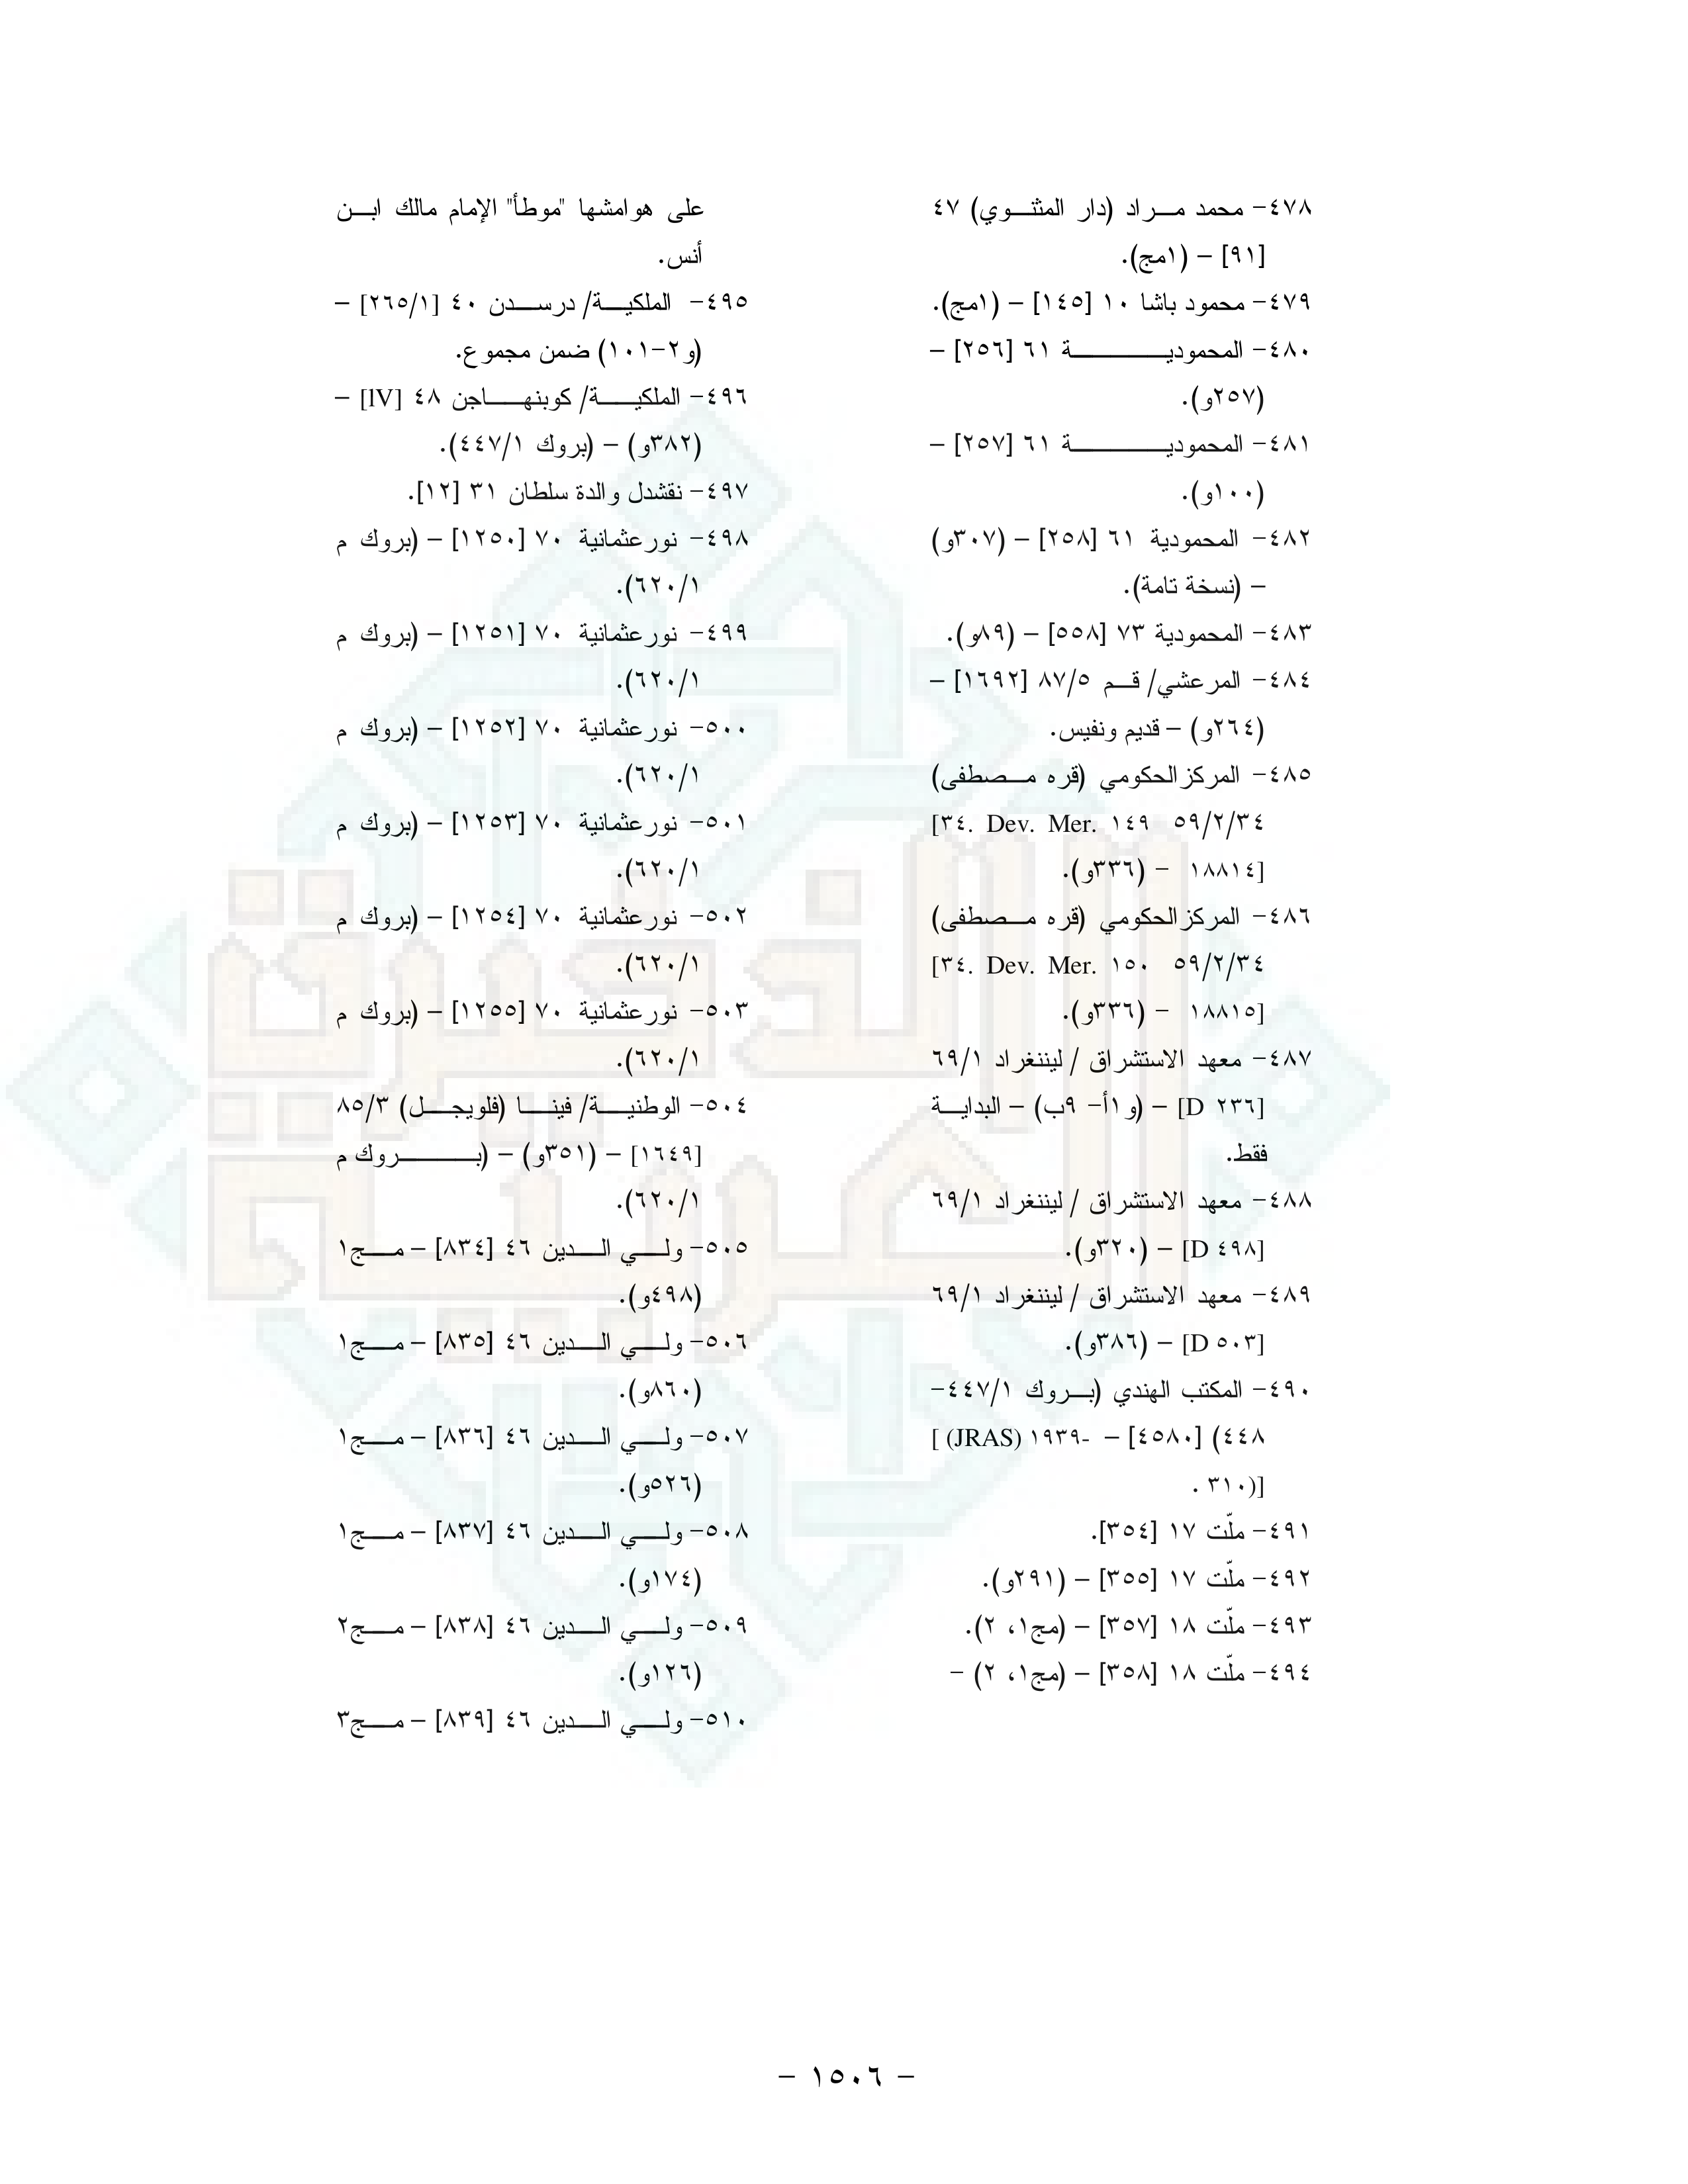 ٤٧٨- محمد مراد (دار المثنوي) ٤٧
[٩١] – (١مج).
٤٧٩- محمود باشا ١٠ [١٤٥] – (١مج).
٤٨٠- المحمودية ٦١ [٢٥٦] –
(٢٥٧و).
٤٨١- المحمودية ٦١ [٢٥٧] –
(١٠٠و).
٤٨٢- المحمودية ٦١ [٢٥٨] – (٣٠٧و)
– (نسخة تامة).
٤٨٣- المحمودية ٧٣ [٥٥٨] – (٨٩و).
٤٨٤- المرعشي/ قم ٨٧/٥ [١٦٩٢] –
(٢٦٤و) – قديم ونفيس.
٤٨٥- المركز الحكومي (قره مصطفى)
٥٩/٢/٣٤ [٣٤. Dev. Mer. ١٤٩
١٨٨١٤] – (٣٣٦و).
٤٨٦- المركز الحكومي (قره مصطفى)
٥٩/٢/٣٤ [٣٤. Dev. Mer. ١٥٠
١٨٨١٥] – (٣٣٦و).
٤٨٧- معهد الاستشراق / ليننغراد ٦٩/١
[D ٢٣٦] – (و١أ- ٩ب) – البداية
فقط.
٤٨٨- معهد الاستشراق / ليننغراد ٦٩/١
[D ٤٩٨] – (٣٢٠و).
٤٨٩- معهد الاستشراق / ليننغراد ٦٩/١
[D ٥٠٣] – (٣٨٦و).
٤٩٠- المكتب الهندي (بروك ٤٤٧/١-
٤٤٨) [٤٥٨٠] – [ (JRAS) ١٩٣٩-
٣١٠)] .
٤٩١- ملّت ١٧ [٣٥٤].
٤٩٢- ملّت ١٧ [٣٥٥] – (٢٩١و).
٤٩٣- ملّت ١٨ [٣٥٧] – (مج١، ٢).
٤٩٤- ملّت ١٨ [٣٥٨] – (مج١، ٢) –
على هوامشها "موطأ" الإمام مالك ابن
أنس.
٤٩٥- الملكية/ درسدن ٤٠ [٢٦٥/١] –
(و٢-١٠١) ضمن مجموع.
٤٩٦- الملكية/ كوبنهاجن ٤٨ [lV] –
(٣٨٢و) – (بروك ٤٤٧/١).
٤٩٧- نقشدل والدة سلطان ٣١ [١٢].
٤٩٨- نورعثمانية ٧٠ [١٢٥٠] – (بروك م
٦٢٠/١).
٤٩٩- نورعثمانية ٧٠ [١٢٥١] – (بروك م
٦٢٠/١).
٥٠٠- نورعثمانية ٧٠ [١٢٥٢] – (بروك م
٦٢٠/١).
٥٠١- نورعثمانية ٧٠ [١٢٥٣] – (بروك م
٦٢٠/١).
٥٠٢- نورعثمانية ٧٠ [١٢٥٤] – (بروك م
٦٢٠/١).
٥٠٣- نورعثمانية ٧٠ [١٢٥٥] – (بروك م
٦٢٠/١).
٥٠٤- الوطنية/ فينا (فلويجل) ٨٥/٣
[١٦٤٩] – (٣٥١و) – (بروك م
٦٢٠/١).
٥٠٥- ولي الدين ٤٦ [٨٣٤] – مج١
(٤٩٨و).
٥٠٦- ولي الدين ٤٦ [٨٣٥] – مج١
(٨٦٠و).
٥٠٧- ولي الدين ٤٦ [٨٣٦] – مج١
(٥٢٦و).
٥٠٨- ولي الدين ٤٦ [٨٣٧] – مج١
(١٧٤و).
٥٠٩- ولي الدين ٤٦ [٨٣٨] – مج٢
(١٢٦و).
٥١٠- ولي الدين ٤٦ [٨٣٩] – مج٣
– ١٥٠٦ –
الذخيرة
العربية